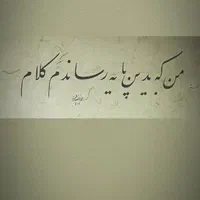 من که بدین پایه رساندم کلام